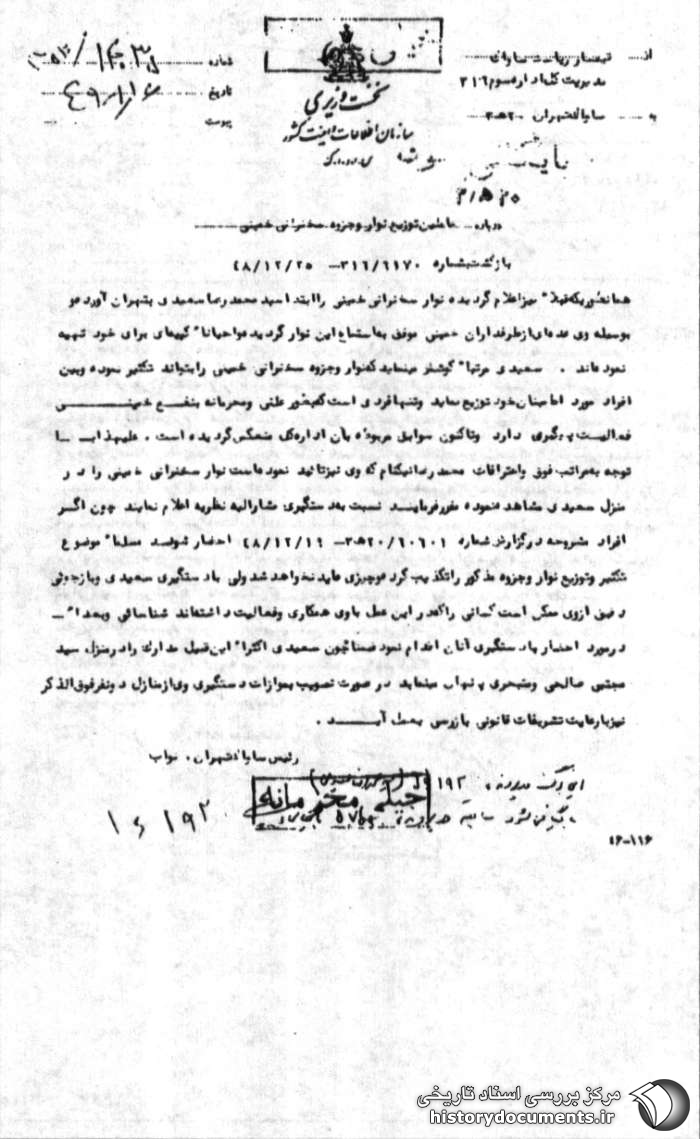 شماره
تاریخ ۴۹/۱/۶
پیوست
نخست وزیری
سازمان اطلاعات و امنیت کشور
از تیمسار ریاست ساواک
مدیریت کل اداره سوم ۳۱۶
به ساواک تهران ۲۰ ه ۳
درباره عاملین توزیع نوار و جزوه سخنرانی خمینی
بازگشت بشماره ۳۱۶/۶۱۷۰ – ۴۸/۱۲/۲۵
همانطوریکه قبلا" نیز اعلام گردیده نوار سخنرانی خمینی را ابتدا سید محمد رضا سعیدی بتهران آورده و
بوسیله وی عده‌ای از طرفداران خمینی موفق به استماع این نوار گردیده و احیانا" کپیهای برای خود تهیه
نموده‌اند . سعیدی مرتبا" کوشش مینماید که نوار و جزوه سخنرانی خمینی را بتواند تکثیر نموده و بین
افراد مورد اطمینان خود توزیع نماید و تنها فردی است که بطور علنی و محرمانه بنفع خمینی
فعالیت پیگیری دارد و تاکنون سوابق مربوطه بآن اداره کل منعکس گردیده است . علیهذا با
توجه به مراتب فوق و اعترافات محمد رضا نیکنام که وی نیز تائید نموده است نوار سخنرانی خمینی را در
منزل سعیدی مشاهده نموده مقرر فرمایند نسبت به دستگیری مشارالیه نظریه اعلام نمایند چون اگر
افراد مشروحه در گزارش شماره ۲۰/۶۰۶۰۱ ه ۳ – ۴۸/۱۲/۱۹ احضار شوند مسلما" موضوع
تکثیر و توزیع نوار و جزوه مذکور را تکذیب کرده و چیزی عاید نخواهد شد ولی با دستگیری سعیدی و بازجوئی
دقیق از وی ممکن است کسانی را که در این عمل با وی همکاری و فعالیت داشته‌اند شناسائی و بعدا"
در مورد احضار یا دستگیری آنان اقدام نمود ضمنا" چون سعیدی اکثرا" این قبیل مدارک را در منزل سید
مجتبی صالحی و مبحری پنهان مینماید در صورت تصویب بموازات دستگیری وی از منازل دو نفر فوق الذکر
نیز با رعایت تشریفات قانونی بازرسی بعمل آید .
رئیس ساواک تهران . نواب
خیلی محرمانه
۱۶-۱۱۶
مرکز بررسی اسناد تاریخی
historydocuments.ir